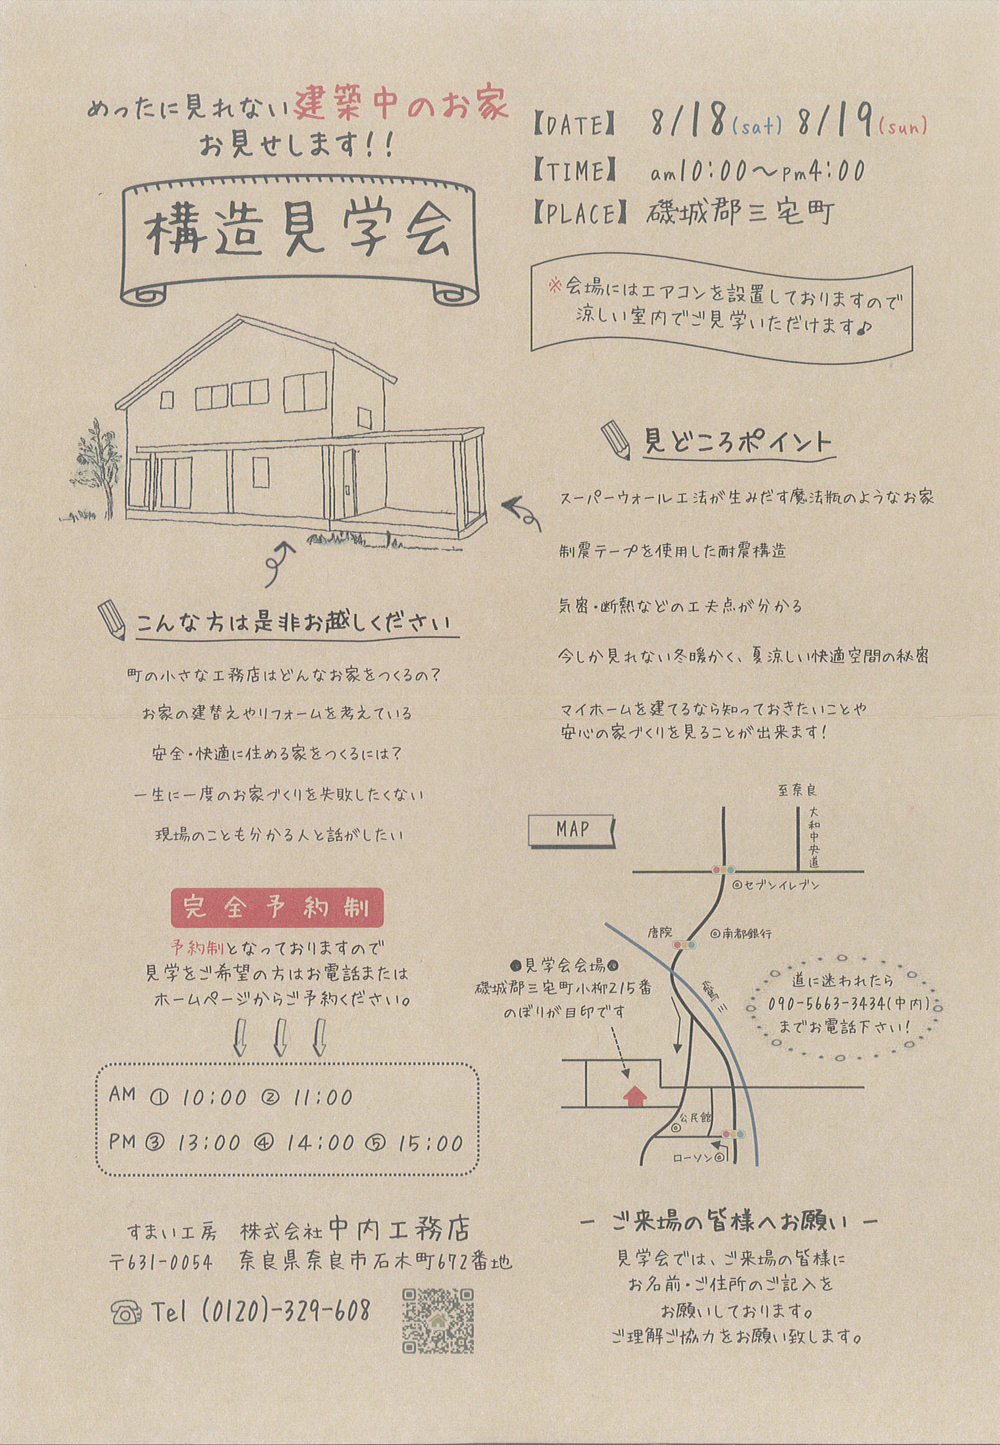 めったに見れない建築中のお家
お見せします!!
構造見学会
【DATE】 8/18(sat) 8/19(sun)
【TIME】 am10:00〜pm4:00
【PLACE】 磯城郡三宅町
※会場にはエアコンを設置しておりますので
涼しい室内でご見学いただけます♪
見どころポイント
スーパーウォール工法が生みだす魔法瓶のようなお家
制震テープを使用した耐震構造
気密・断熱などの工夫点が分かる
今しか見れない冬暖かく、夏涼しい快適空間の秘密
マイホームを建てるなら知っておきたいことや
安心の家づくりを見ることが出来ます!
こんな方は是非お越しください
町の小さな工務店はどんなお家をつくるの?
お家の建替えやリフォームを考えている
安全・快適に住める家をつくるには?
一生に一度のお家づくりを失敗したくない
現場のことも分かる人と話がしたい
完全予約制
予約制となっておりますので
見学をご希望の方はお電話または
ホームページからご予約ください。
AM ① 10:00 ② 11:00
PM ③ 13:00 ④ 14:00 ⑤ 15:00
すまい工房 株式会社中内工務店
〒631-0054 奈良県奈良市石木町672番地
Tel (0120)-329-608
MAP
至奈良
大和中央道
◎セブンイレブン
唐院
◎南都銀行
●見学会会場●
磯城郡三宅町小柳215番
のぼりが目印です
道に迷われたら
090-5663-3434(中内)
までお電話下さい!
公民館
◎
ローソン◎
− ご来場の皆様へお願い −
見学会では、ご来場の皆様に
お名前・ご住所のご記入を
お願いしております。
ご理解ご協力をお願い致します。